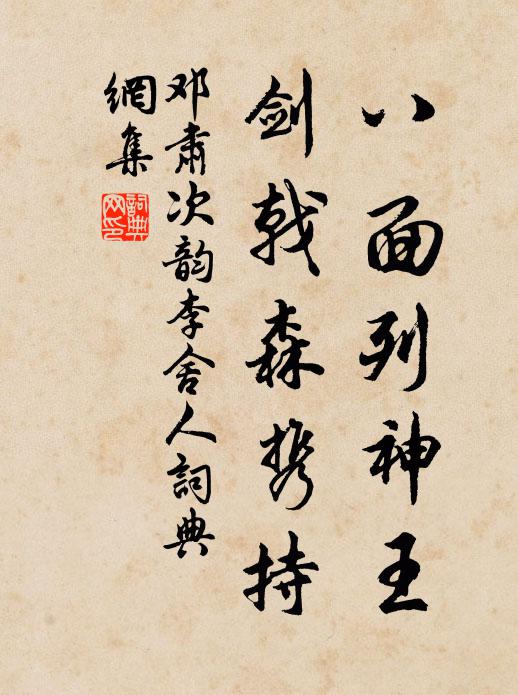 八面列神王
剑戟森携持
邓肃次韵李舍人詞典
網集
詞典
网印